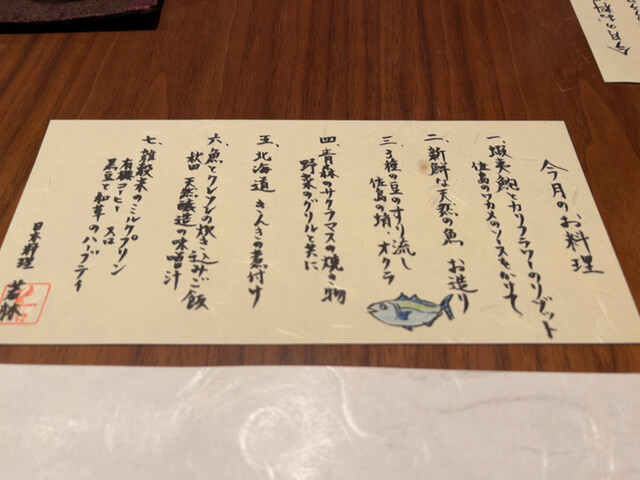 今月のお料理
一、蝦夷鮑とカリフラワーのリゾット
佐島のワカメのソースをかけて
二、新鮮な天然の魚 お造り
三、3種の豆のすり流し
佐島の蛸、オクラ
四、青森のサクラマスの焼き物
野菜のグリルと共に
五、北海道 きんきの煮付け
六、魚とクレソンの炊き込みご飯
秋田 天然醸造の味噌汁
七、雑穀米のミルクプリン
有機コーヒー 又は
黒豆と和草のハーブティ
日本料理 若林
今月のお料